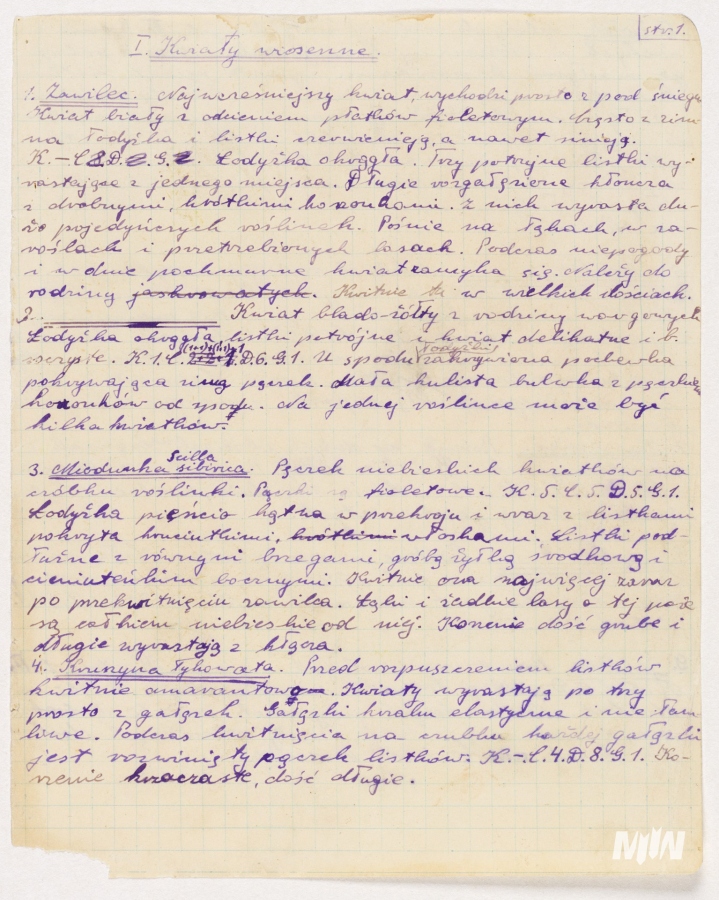 str. 1.
I. Kwiaty wiosenne.
1. Zawilec. Najwcześniejszy kwiat, wychodzi prosto z pod śniegu
Kwiat biały z odcieniem płatków fioletowym. Często z zim-
na łodyżka i listki czerwienieją, a nawet sinieją.
K. - C D. G. Łodyżka okrągła. Trzy potrójne listki wy-
rastające z jednego miejsca. Długie rozgałęzione kłoncza
z drobnymi, krótkimi koronkami. Z nich wyrasta du-
żo pojedyńczych roślinek. Rośnie na łąkach, w za-
roślach i przetrzebionych lasach. Podczas niepogody
i w dnie pochmurne kwiat zamyka się. Należy do
rodziny jaskrowatych. Kwitnie tu w wielkich ilościach.
2. Kwiat blado-żółty z rodziny
Łodyżka okrągła listki potrójne i kwiat delikatne i b.
K. 1. C. D. 6. G. 1. U spodu łodyżki zakrzywiona pochewka
pokrywająca zimą pączek. Mała kulista bulwka z pęczkiem
od spodu. Na jednej roślince może być
kilka kwiatków.
3. Miodunka Scilla sibirica. Pączek niebieskich kwiatków na
czóbku roślinki. Pączki są fioletowe. K. 5. C. 5. D. 5. G. 1.
Łodyżka pięścio kątna w przekroju i wraz z listkami
pokryta kruciutkimi, krótkimi włoskami. Listki pod-
łużne z równymi brzegami, gróbą żyłką środkową i
cieniuteńkim bocznymi. Kwitnie ona najwięcej zaraz
po przekwitnięciu zawilca. Łąki i rzadkie lasy o tej porze
są całkiem niebieskie od niej. Korzenie dość grube i
długie wyrastają z kłącza.
4. Kruszyna łykowata. Przed rozpuszczeniem listków
kwitnie amarantowo. Kwiaty wyrastają po trzy
prosto z gałązek. Gałązki krzaku elastyczne i nie łam-
liwe. Podczas kwitnięcia na czubku każdej gałązki
jest rozwinięty pączek listków. K. - C. 4. D. 8. G. 1. Ko-
rzenie krzaczaste, dość długie.